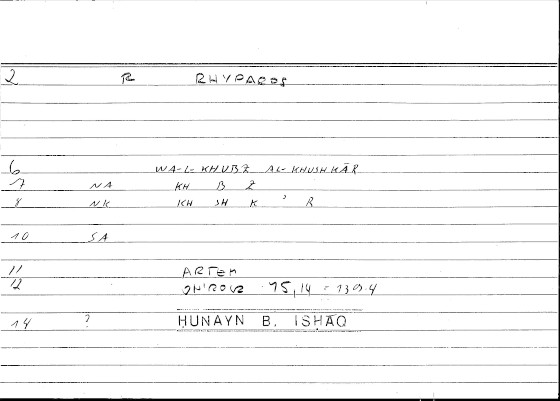 2 R RHYPAROS
6 WA-L-KHUBZ AL-KHUSHKĀR
7 NA KH B Z
8 NK KH SH K ʾ R
10 SA
11 ARTEM
12 ONIROCR 75,14 = 139.4
14 ? HUNAYN B. ISHAQ